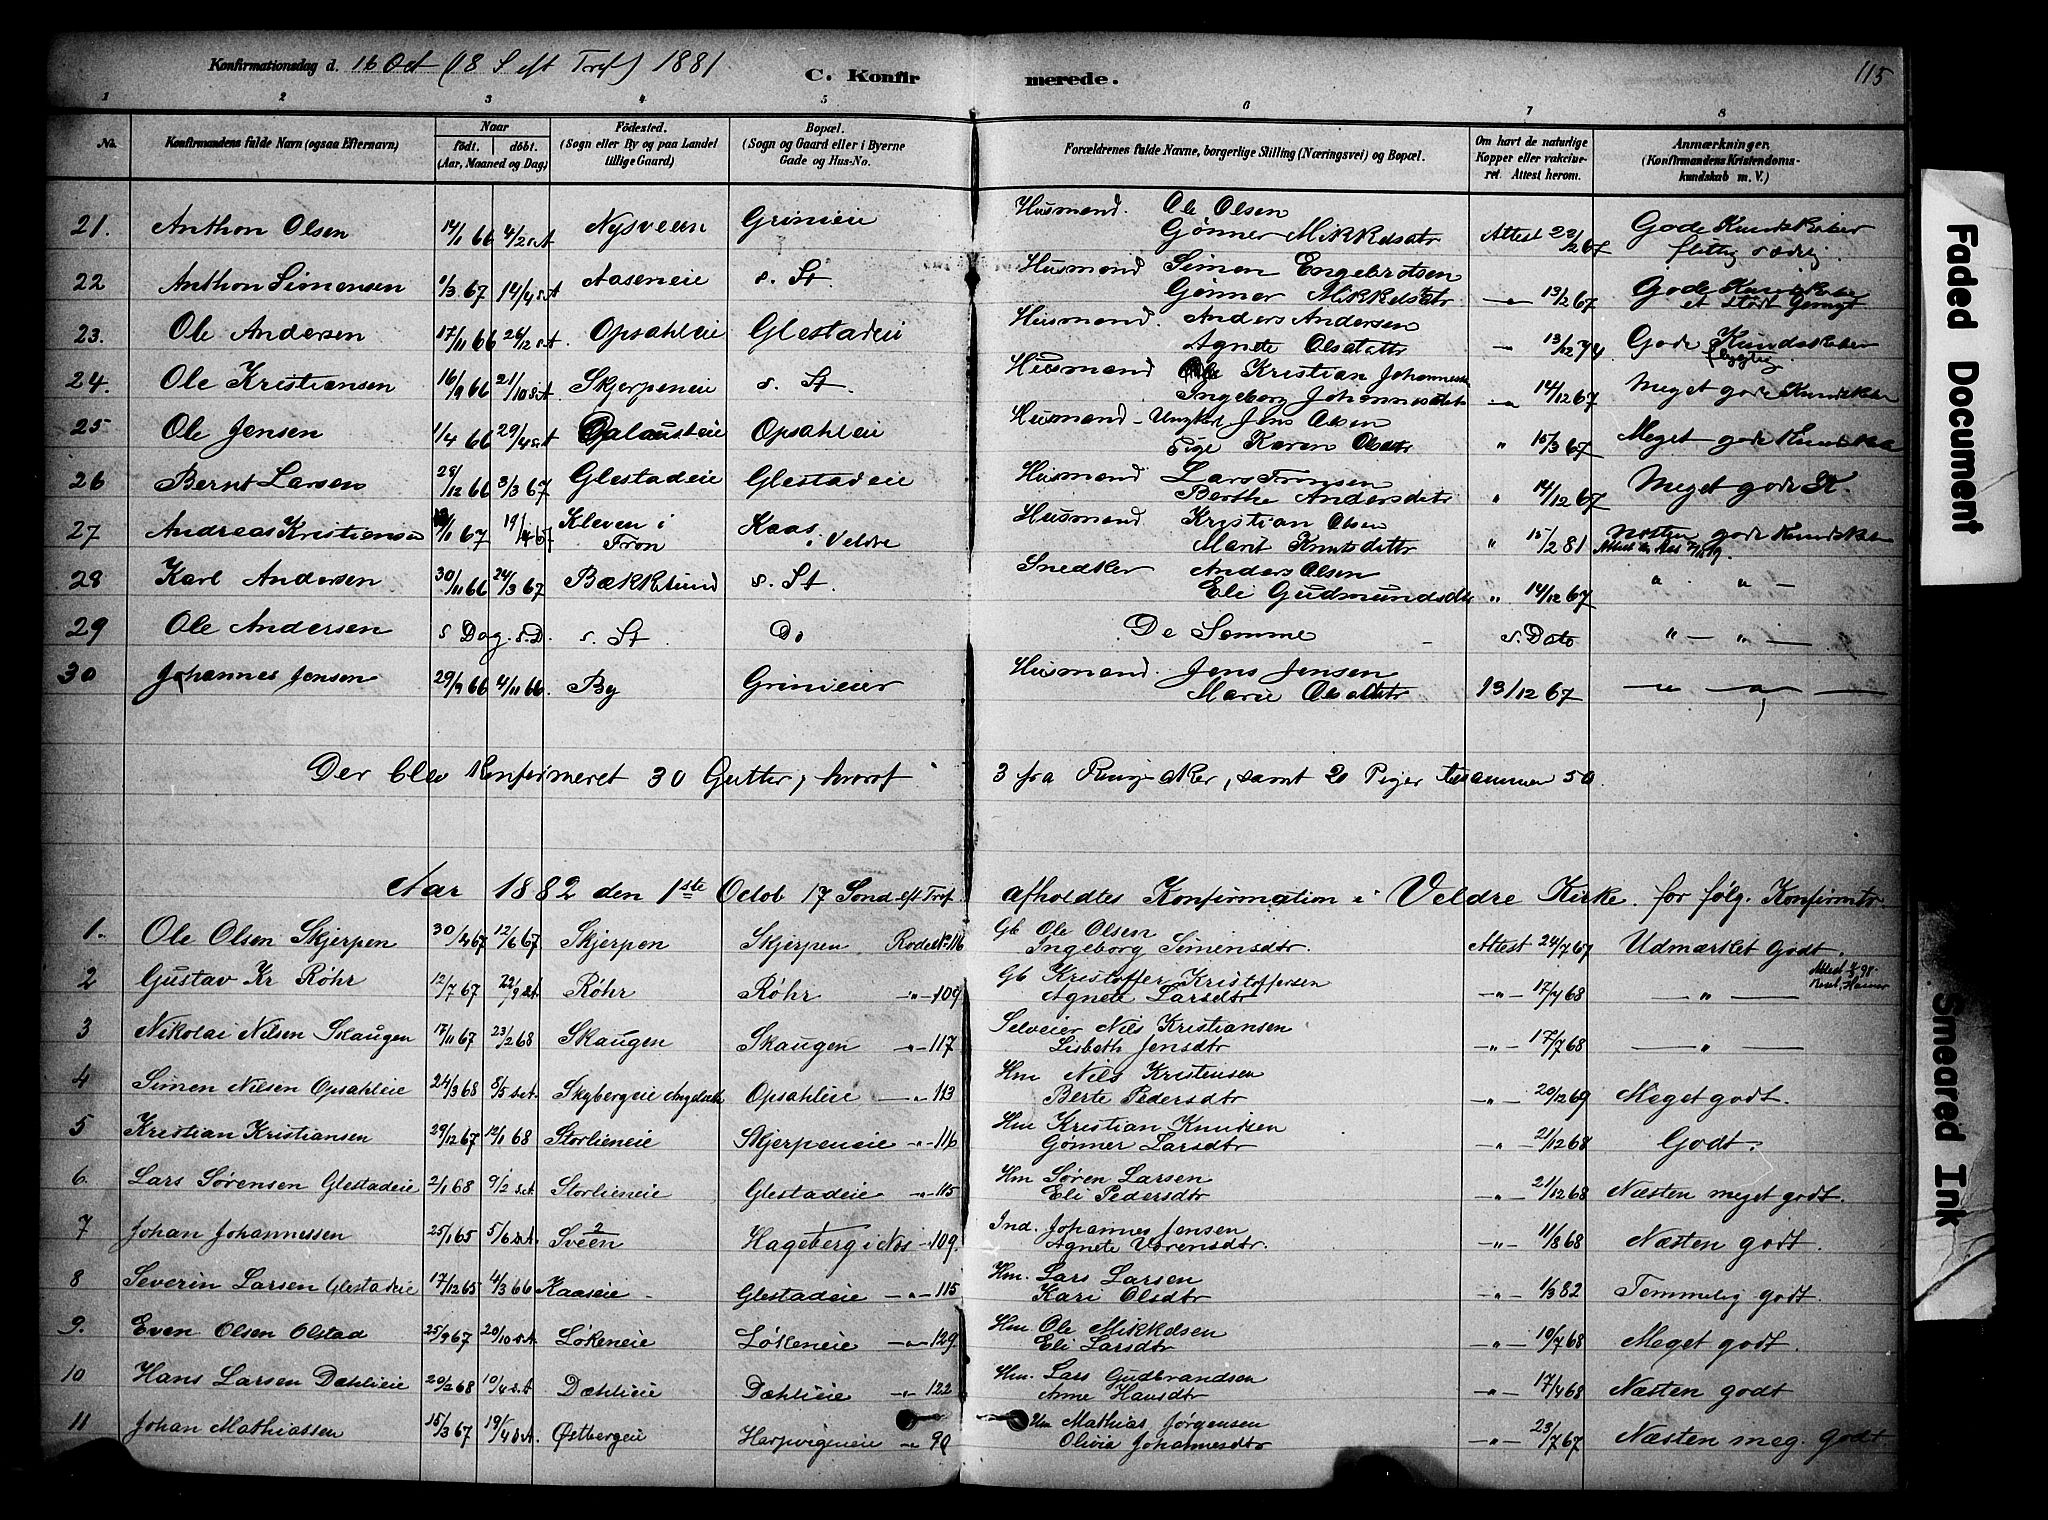 Konfirmationsdag d. 16 Oct (18 S eft Tref) 1881 C. Konfirmerede. 115
1 2 3 4 5 6 7 8
No. Konfirmandens fulde Navn (ogsaa Efternavn) Naar født. døbt. (Aar, Maaned og Dag) Fødested. (Sogn eller By og paa Landet tillige Gaard) Bopæl. (Sogn og Gaard eller i Byerne Gade og Hus-No. Forældrenes fulde Navne, borgerlige Stilling (Næringsvei) og Bopæl. Om havt de naturlige Kopper eller vakcineret. Attest herom. Anmærkninger. (Konfirmandens Kristendomskundskab m. V.)
21. Anthon Olsen 14/1 66 4/2 s.A Nysveen Grinieie Husmand. Ole Olsen Gønner Mikkelsdtr Attest 22/2 67 Gode Kundskaber flittig sædelig
22 Anthon Simensen 1/3 67 14/4 s.A Aaseneie s. St Husmand Simen Engebretsen Gønner Mikkelsdtr -„- 13/2 67 Gode Kundskaber et stødt Gemyt
23. Ole Andersen 17/11 66 26/12 s.A Opsahleie Glestadeie Husmand. Anders Andersen Agnete Olsdatter „ 13/12 74. Gode Kundskaber
24. Ole Kristiansen 16/9 66 21/10 s.A Skjerpeneie s. St. Husmand Kristian Johannesen Ingeborg Johannesdtr -„- 14/12 67 Meget gode Kundskaber
25 Ole Jensen 1/4 66 29/4 s.A Opsahleie Husmand - Ungkarl Jens Olsen Pige Karen Olsdtr „ 15/3 67 Meget gode Kundska
26 Bernt Larsen 28/12 66 3/3 67 Glestadeie Glestadeie Husmand Lars Berthe Andersdatr „ 14/12 67 Meget gode K.
27 Andreas Kristiansen 1/1 67 19/4 67 Kleven i Fron Kaas i Veldre Husmand Kristian Olsen Marit Knutsdattr „ 15/2 81 Næsten gode Kundskab
28 Karl Andersen 30/11 66 24/3 67 Bækkelund s. St. Snedker Anders Olsen Eli Gudmundsdtr „ 14/12 67 „ „ -
29 Ole Andersen s Dag. s. D. s. St. Do De Samme s. Dato „ - „ -
30 Johannes Jensen 29/9 66 4/11 66. By Grinieier Husmand. Jens Jensen Marie Olsdattr 13/12 67 — „ —
Der blev konfirmeret 30 Gutter, hvoraf 3 fra Ringsaker, samt 20 Piger tilsammen 50.
Aar 1882 den 1ste Octob 17 Sønd. eft Tref. afholdtes Konfirmation i Veldre Kirke. for følg. Konfirmtr.
1. Ole Olsen Skjerpen 30/4 67 12/6 67 Skjerpen Skjerpen Rode No 116 Gb Ole Olsen Ingeborg Simensdtr. Attest 24/7 67 Udmærket Godt.
2 Gustav Kr Røhr 12/7 67 22/9 s.A Røhr Røhr -„- 109 Gb Kristoffer Kristoffersen Agnete Larsdtr -„- 17/7 68 — „ —
3 Nikolai Nilsen Skaugen 17/11 67 23/2 68 Skaugen Skaugen -„- 117 Selveier Nils Kristiansen Lisbeth Jensdtr -„- 17/7 68 — „ —
4 Simen Nilsen Opsahleie 24/3 68 8/5 s.A. Skybergeie Opsahleie -„- 113 Hm Nils Kristensen Berte Pedersdtr -„- 20/12 69 Meget godt.
5 Kristian Kristiansen 29/12 67 12/1 68 Storlieneie Skjerpeneie -„- 116 Hm Kristian Knudsen Gønner Larsdtr -„- 21/12 68 Godt.
6. Lars Sørensen Glestadeie 2/1 68 9/2 s.A Storlieneie Glestadeie -„- 115 Hm Søren Larsen Eli Pedersdtr -„- 21/12 68 Næsten meget godt.
7 Johan Johannessen 25/1 65 5/6 s.A. Sveen Hageberg i Næs -109. Ind. Johannes Jensen Agnete -„- 11/8 68 Næsten godt.
8 Severin Larsen Glestadeie 17/12 65 4/3 66 Kaaseie - Glestadeie -„- 115 Hm. Lars Larsen Kari Olsdtr -„- 1/3 82 Temmelig godt.
9. Even Olsen Olstad 25/9 67 20/10 s.A. Løkeneie Løkeneie -„- 129. Hm Ole Mikkelsen Eli Larsdtr -„- 10/7 68 Meget godt.
10 Hans Larsen Dæhlieie 20/2 68 10/4 s.A Dæhlieie Dæhlieie -„- 122 Hm. Lars Gudbrandsen Anne Hansdtr -„- 17/4 68 Næsten godt
11 Johan Mathiassen 15/3 67 19/4 s.A. Østbergeie Harpvigeneie -„- 90 Hm Mathias Jørgensen Olivia Johannesdtr -„- 23/7 67 Næsten meg. Godt
Faded Document
Smeared Ink